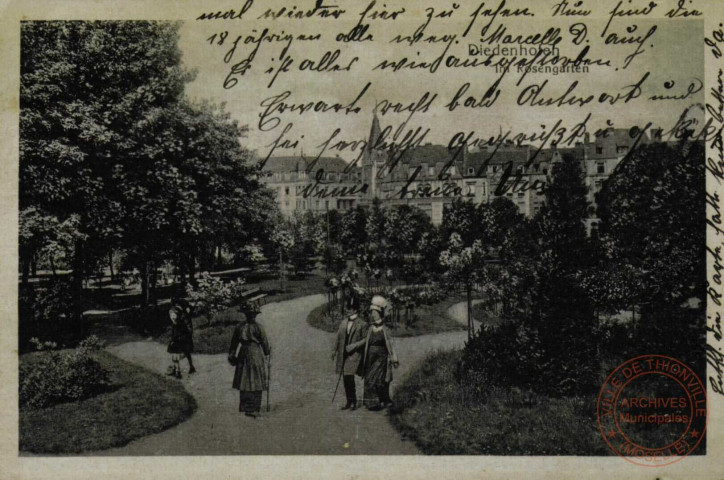 mal wieder hier zu sehen. Nun sind die
18 jährigen alle weg. Marcell D. auch.
Es ist alles wie ausgestorben.
Erwarte recht bald Antwort und
sei herzlichst gegrüßt u. geküßt
Diedenhofen
im Rosengarten
VILLE DE THIONVILLE
ARCHIVES
Municipales
(MOSELLE)